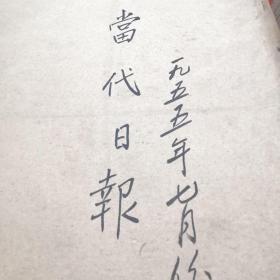 一九五五年七月份
當代日報